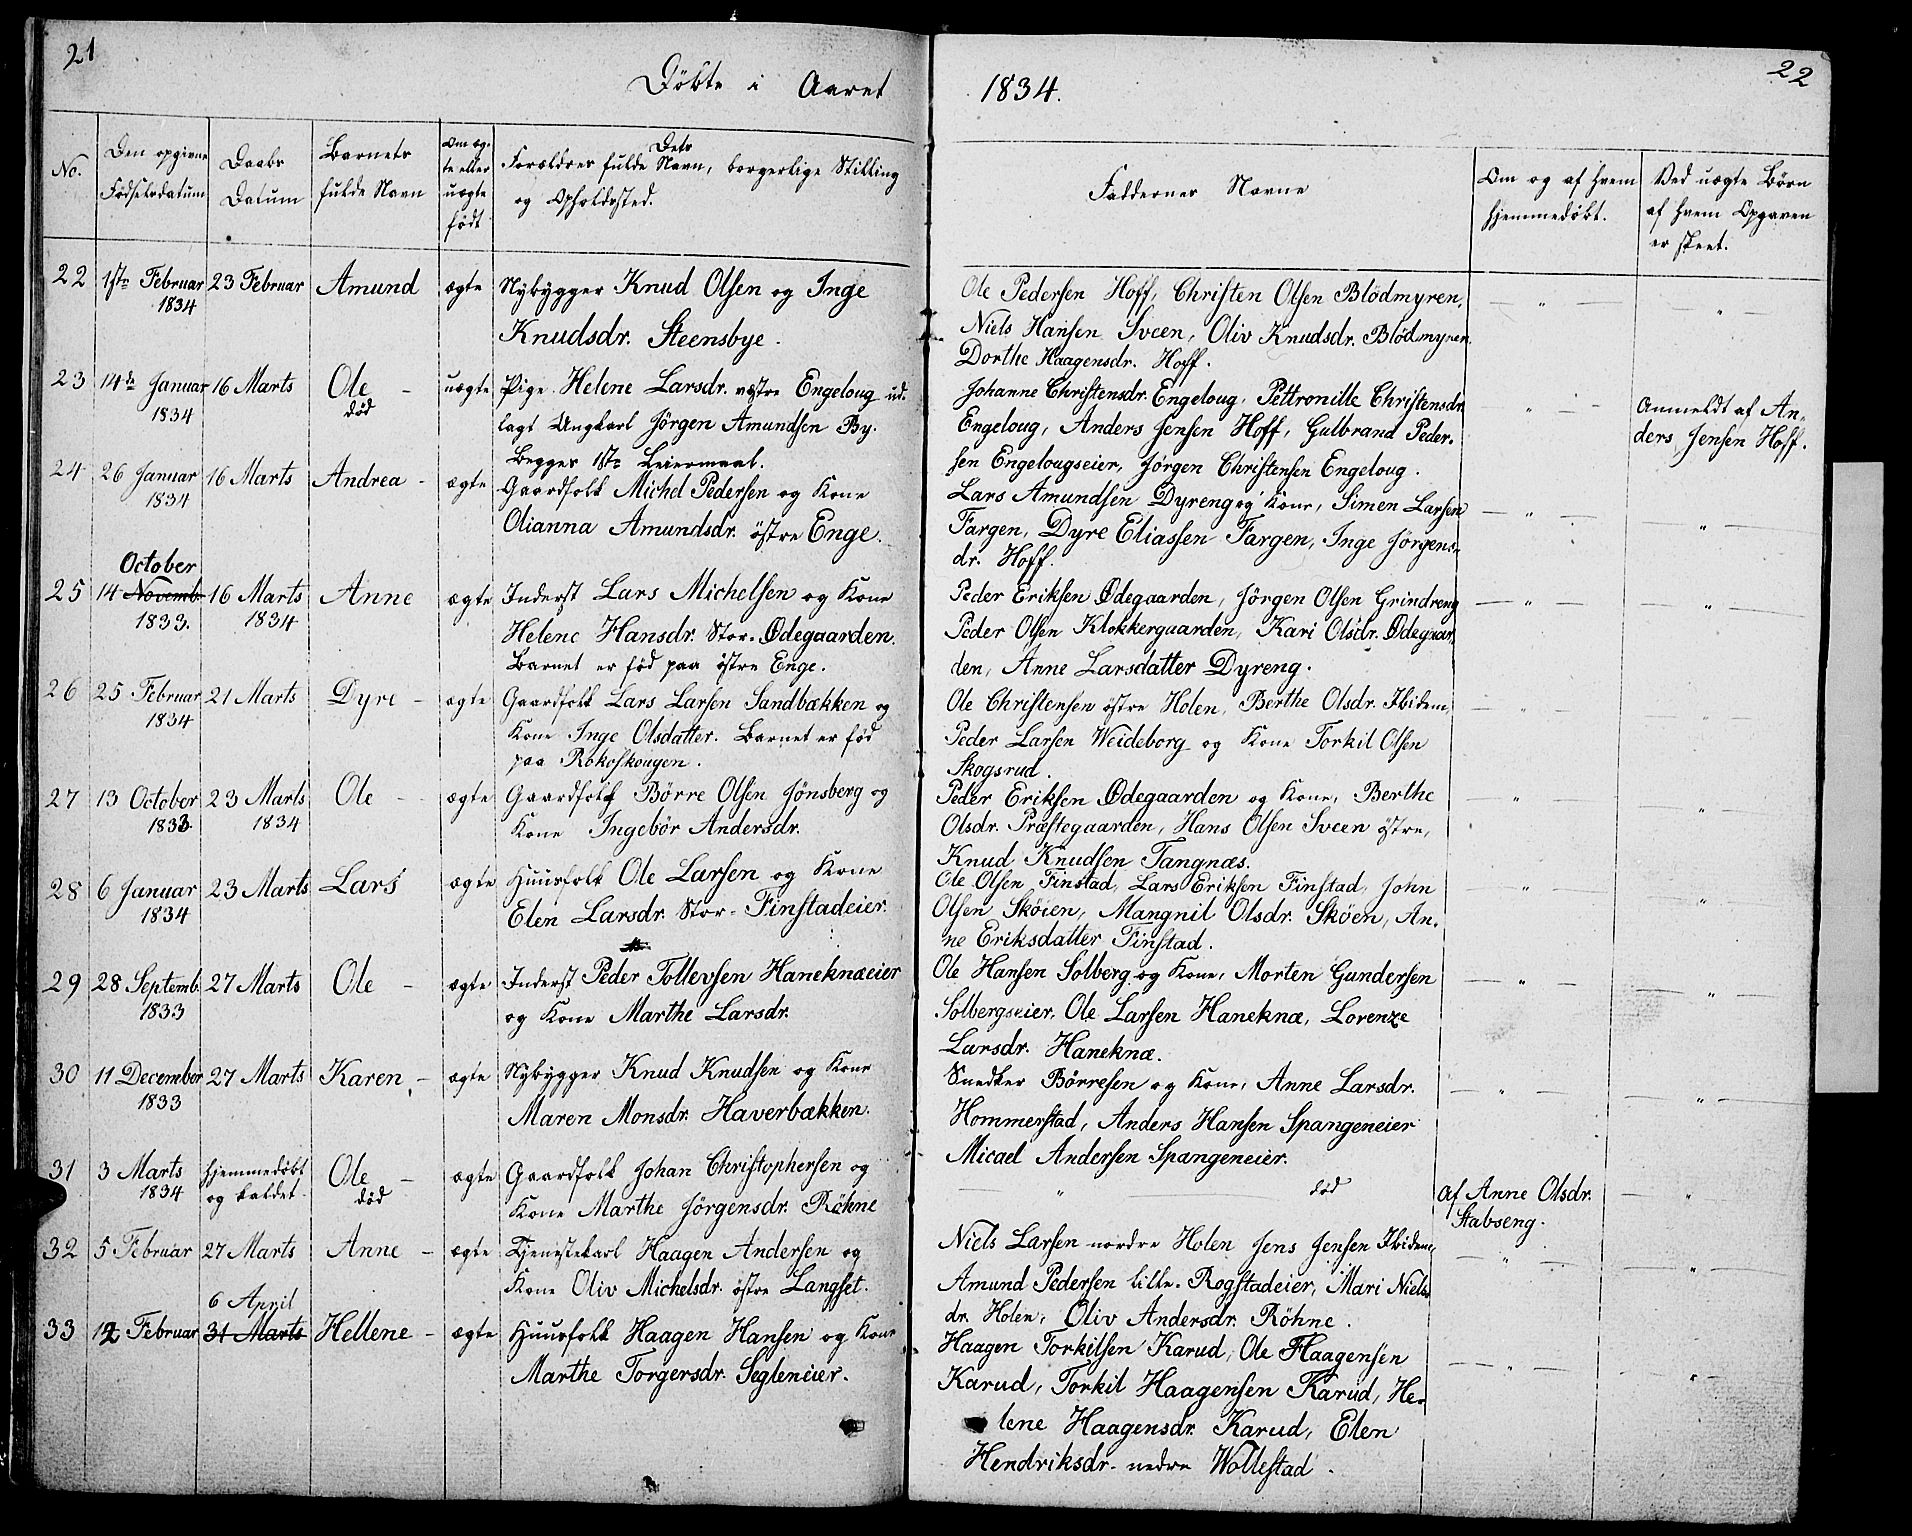 21
Døbte i Aaret
No.
Den opgivne
Fødselsdatum
Daabs
Datum
Barnets
fulde Navn
Om æg-
te eller
uægte
født
Dets
Forældres fulde Navn, borgerlige Stilling
og Opholdssted.
22 1ste Februar 23 Februar Amund ægte Nybygger Knud Olsen og Inge
1834
Knudsdr. Steensbye.
23 14de Januar 16 Marts Ole - uægte Pige Helene Larsdr. væstre Engeloug ud-
1834 død lagt Ungkarl Jörgen Amundsen By.
Begges 1ste Leiermaal.
24 26 Januar 16 Marts Andrea - ægte Gaardfolk Michel Pedersen og Kone
1834
Olianna Amundsdr. östre Enge.
October
25 14 Novemb. 16 Marts Anne ægte Inderst Lars Michelsen og Kone
1833. 1834 Helene Hansdr. Stor-Ødegaarden.
Barnet er fød paa östre Enge.
26 25 Februar 21 Marts Dyre - ægte Gaardfolk Lars Larsen Sandbækken og
1834 Kone Inge Olsdatter. Barnet er fød
paa Rokoskougen.
27 13 October 23 Marts Ole - ægte Gaardfolk Börre Olsen Jönsberg og
1833 1834 Kone Ingebör Andersdr.
28 6 Januar 23 Marts Lars ægte Huusfolk Ole Larsen og Kone
1834 Elen Larsdr. Stor-Finstadeier.
29 28 Septemb. 27 Marts Ole - ægte Inderst Peder Tollevsen Haneknæeier
1833 og Kone Marthe Larsdr.
30 11 December 27 Marts Karen - ægte Nybygger Knud Knudsen og Kone
1833 Maren Monsdr. Haverbækken.
31 3 Marts hjemmedøbt Ole - ægte Gaardfolk Johan Christophersen og
1834 og kaldet død Kone Marthe Jörgensdr. Röhne
32 5 Februar 27 Marts Anne - ægte Tjenestekarl Haagen Andersen og
Kone Oliv Michelsdr. östre Langset.
6 April
33 12 Februar 31 Marts Hellene - ægte Huusfolk Haagen Hansen og Kone
Marthe Torgersdr. Segleneier.
22
1834.
Faddernes Navne
Om og af hvem
hjemmedøbt.
Ved uægte Børn
af hvem Opgaven
er skeet.
Ole Pedersen Hoff, Christen Olsen Blödmyren,
Niels Hansen Sveen, Oliv Knudsdr. Blödmyren,
Dorthe Haagensdr. Hoff.
Johanne Christensdr. Engeloug, Pettronille Christensdr.
Engeloug, Anders Jensen Hoff, Gulbrand Peder-
sen Engelougseier, Jörgen Christensen Engeloug.
Anmeldt af An-
ders Jensen Hoff.
Lars Amundsen Dyreng og Kone, Simen Larsen
Fargen, Dyre Eliassen Fargen, Inge Jörgens-
dr. Hoff.
Peder Eriksen Ødegaarden, Jörgen Olsen Grindreng
Peder Olsen Klokkergaarden, Kari Olsdr. Ødegaar-
den, Anne Larsdatter Dyreng.
Ole Christensen östre Holen, Berthe Olsdr. Ibidem,
Peder Larsen Weideborg og Kone Torkil Olsen
Skogsrud.
Peder Eriksen Ødegaarden og Kone, Berthe
Olsdr. Præstegaarden, Hans Olsen Sveen östre,
Knud Knudsen Tangnæs.
Ole Olsen Finstad, Lars Eriksen Finstad, John
Olsen Sköien, Mangnil Olsdr. Sköen, An-
ne Eriksdatter Finstad.
Ole Hansen Solberg og Kone, Morten Gundersen
Solbergseier, Ole Larsen Haneknæ, Lorenze
Larsdr. Haneknæ.
Snedker Börresen og Kone, Anne Larsdr.
Hommerstad, Anders Hansen Spangeneier
Micael Andersen Spangeneier.
død
af Anne Olsdr.
Stabseng.
Niels Larsen nordre Holen Jens Jensen Ibidem,
Amund Pedersen lille-Rogstadeier, Mari Niels-
dr. Holen, Oliv Andersdr. Röhne.
Haagen Torkilsen Karud, Ole Haagensen
Karud, Torkil Haagensen Karud, He-
lene Haagensdr. Karud, Elen
Hendriksdr. nedre Wollestad.